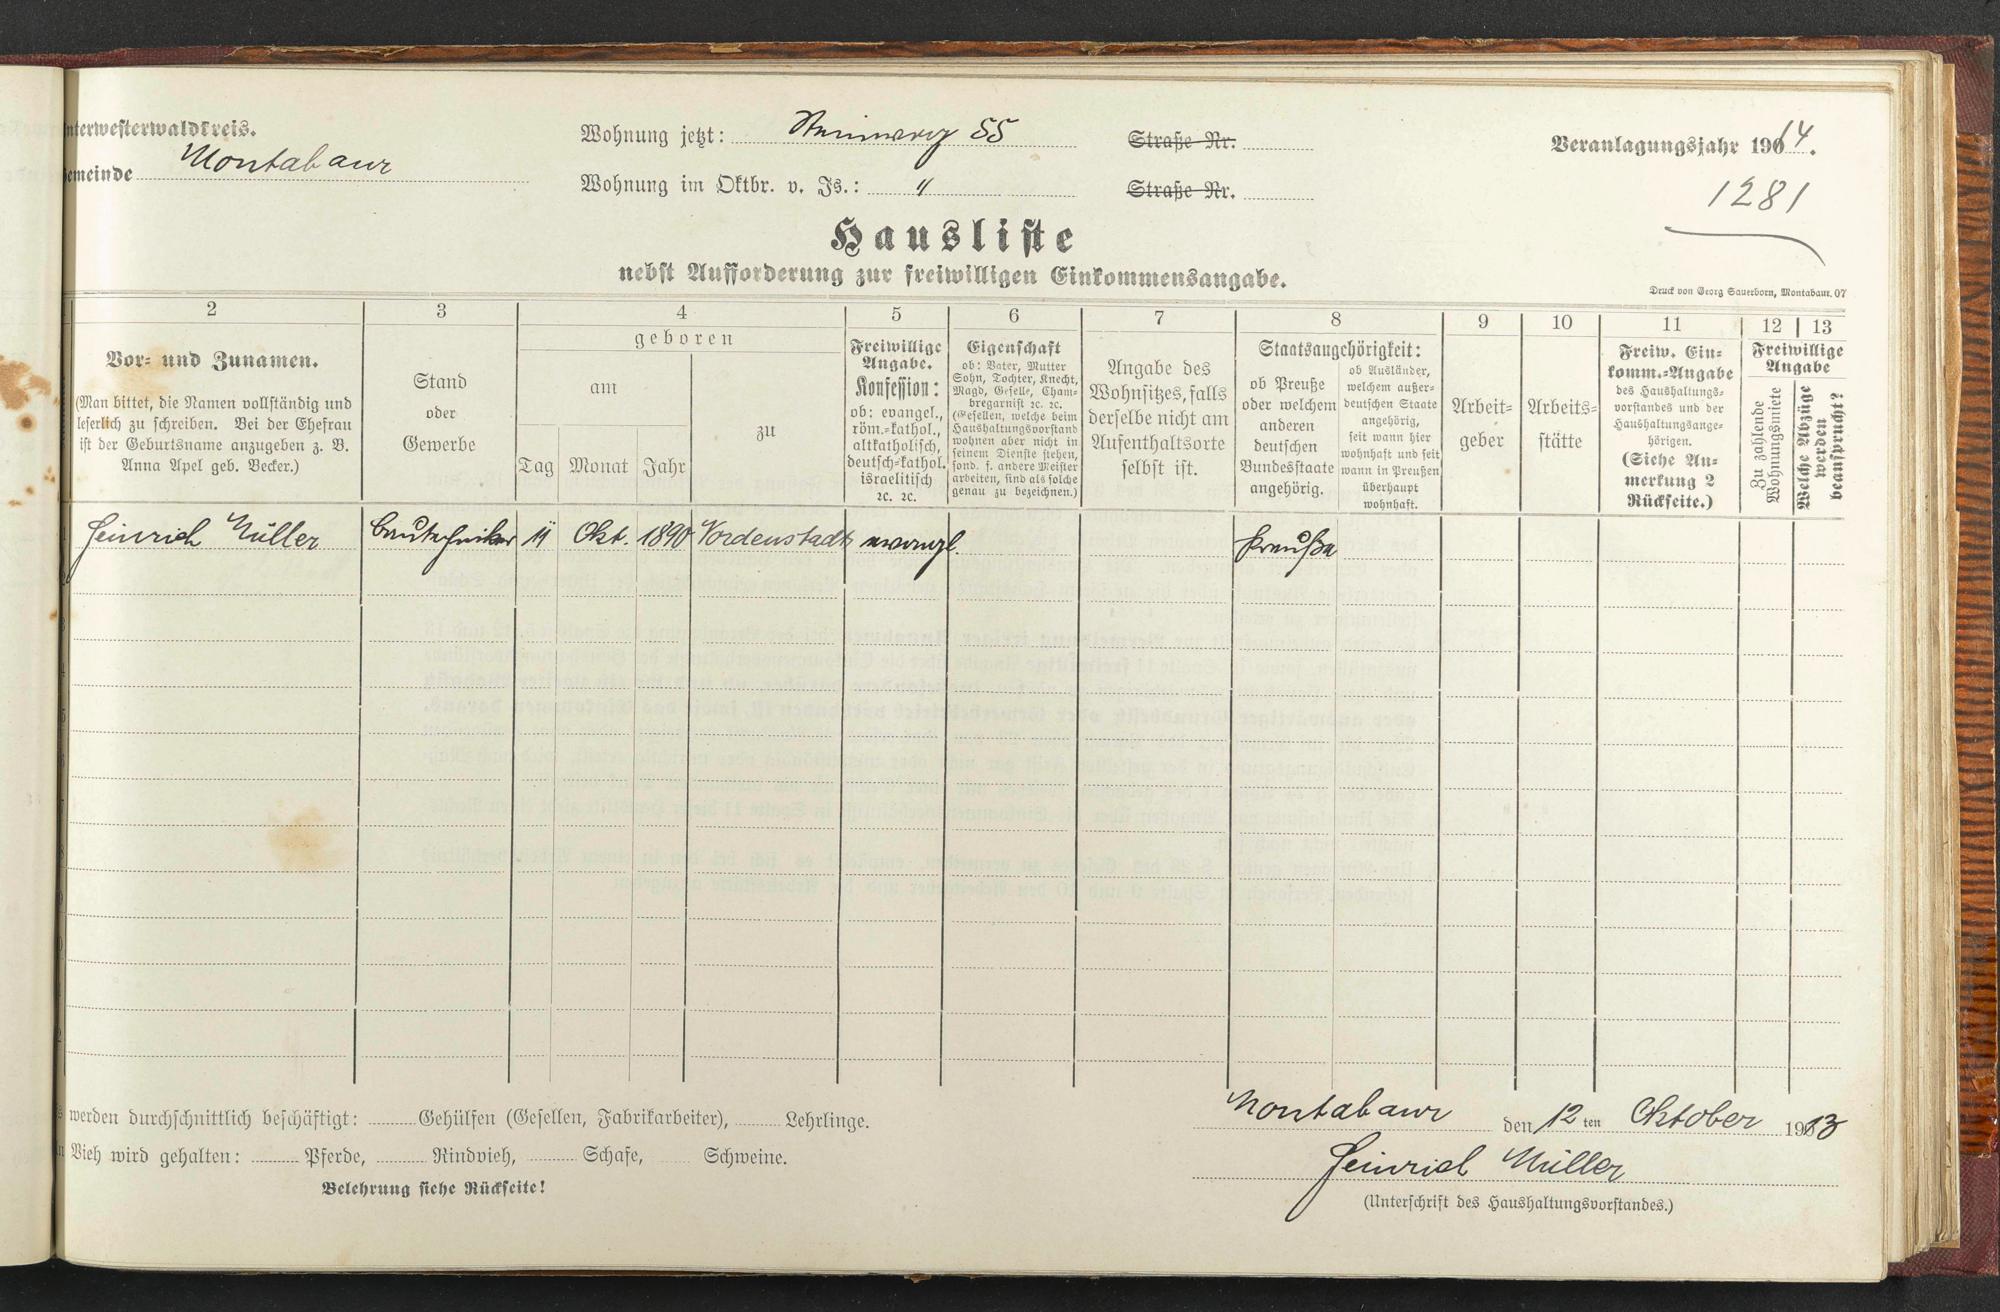 nterwesterwaldkreis.
emeinde Montabaur
Wohnung jetzt: Steinweg 55 Straße Nr.
Wohnung im Oktbr. v. Js.: " Straße Nr.
Veranlagungsjahr 1914.
1281
Hausliste
nebst Aufforderung zur freiwilligen Einkommensangabe.
Druck von Georg Sauerborn, Montabaur. 07
2 3 4 5 6 7 8 9 10 11 12 13
Vor- und Zunamen.
(Man bittet, die Namen vollständig und
leserlich zu schreiben. Bei der Ehefrau
ist der Geburtsname anzugeben z. B.
Anna Apel geb. Becker.)
Stand
oder
Gewerbe
geboren
am
Tag Monat Jahr
zu
Freiwillige
Angabe.
Konfession:
ob: evangel.,
röm.-kathol.,
altkatholisch,
deutsch-kathol.
israelitisch
ꝛc. ꝛc.
Eigenschaft
ob: Vater, Mutter
Sohn, Tochter, Knecht,
Magd, Geselle, Cham-
bregarnist ꝛc. ꝛc.
(Gesellen, welche beim
Haushaltungsvorstand
wohnen aber nicht in
seinem Dienste stehen,
sond. f. andere Meister
arbeiten, sind als solche
genau zu bezeichnen.)
Angabe des
Wohnsitzes, falls
derselbe nicht am
Aufenthaltsorte
selbst ist.
Staatsangehörigkeit:
ob Preuße
oder welchem
anderen
deutschen
Bundesstaate
angehörig.
ob Ausländer,
welchem außer-
deutschen Staate
angehörig,
seit wann hier
wohnhaft und seit
wann in Preußen
überhaupt
wohnhaft.
Arbeit-
geber
Arbeits-
stätte
Freiw. Ein-
komm.-Angabe
des Haushaltungs-
vorstandes und der
Haushaltungsange-
hörigen.
(Siehe An-
merkung 2
Rückseite.)
Freiwillige
Angabe
Zu zahlende
Wohnungsmiete
Welche Abzüge
werden
beansprucht?
Heinrich Müller Bautechniker 11 Okt. 1890 Nordenstadt evangl. Preuße
werden durchschnittlich beschäftigt: Gehülfen (Gesellen, Fabrikarbeiter), Lehrlinge.
Vieh wird gehalten: Pferde, Rindvieh, Schafe, Schweine.
Belehrung siehe Rückseite!
Montabaur den 12 ten Oktober 1913
Heinrich Müller
(Unterschrift des Haushaltungsvorstandes.)